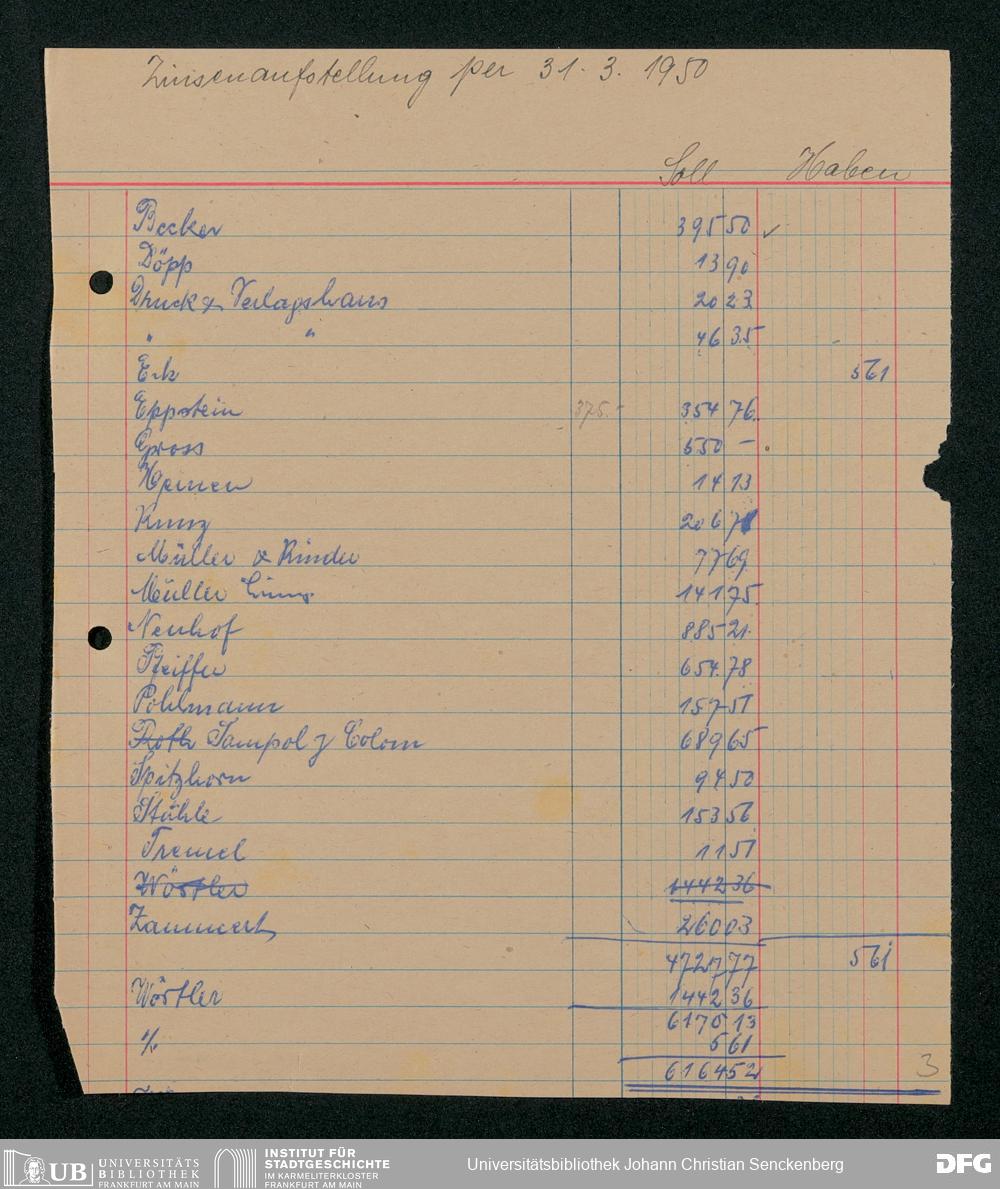 Zinsenaufstellung per 31. 3. 1950
Soll Haben
Becker 395 50 ✓
Döpp 13 90
Druck & Verlagshaus 20 23
" " 46 35
Erk 5 61
Eppstein 375.- 354 76
Gross 550 –
Hemen 14 13
Kunz 206 71
Müller & Rinder 77 69
Müller 141 75
Neuhof 885 21
Pfeiffer 654.78
Pohlmann 157 51
Roth Sampol y Colom 689 65
Spitzhorn 94 50
Stähle 153 56
Tremel 11 51
Wörtler 1442 36
Zammert 260 03
4727 77 5 61
Wörtler 1442 36
6170 13
% 5 61
6164 52
3
UB UNIVERSITÄTS
BIBLIOTHEK
FRANKFURT AM MAIN
INSTITUT FÜR
STADTGESCHICHTE
IM KARMELITERKLOSTER
FRANKFURT AM MAIN
Universitätsbibliothek Johann Christian Senckenberg
DFG